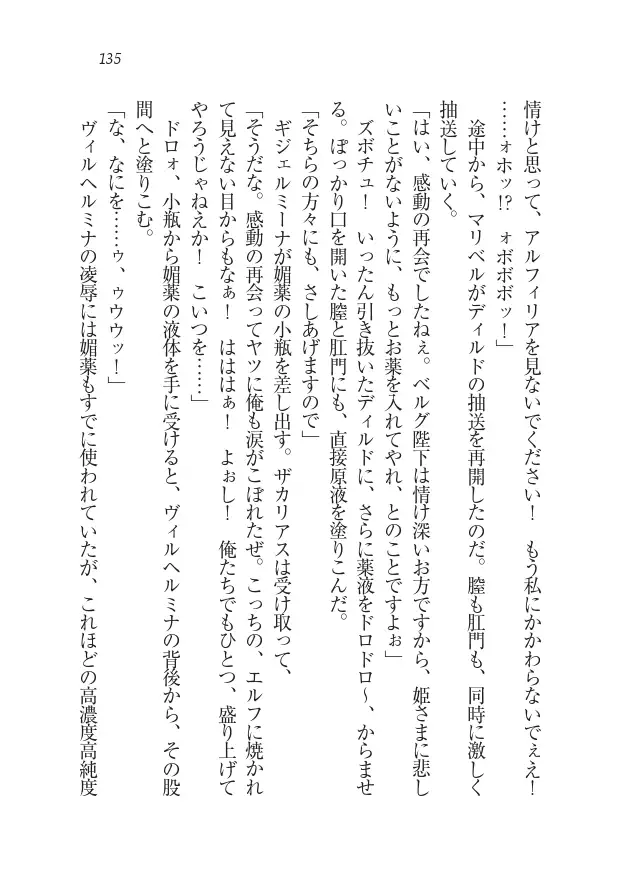 135
情けと思って、アルフィリアを見ないでください！　もう私にかかわらないでぇえ！
……ォホッ!?　ォボボボッ！」
　途中から、マリベルがディルドの抽送を再開したのだ。膣も肛門も、同時に激しく
抽送していく。
「はい、感動の再会でしたねぇ。ベルグ陛下は情け深いお方ですから、姫さまに悲し
いことがないように、もっとお薬を入れてやれ、とのことですよぉ」
　ズボチュ！　いったん引き抜いたディルドに、さらに薬液をドロドロ～、からませ
る。ぽっかり口を開いた膣と肛門にも、直接原液を塗りこんだ。
「そちらの方々にも、さしあげますので」
　ギジェルミーナが媚薬の小瓶を差し出す。ザカリアスは受け取って、
「そうだな。感動の再会ってヤツに俺も涙がこぼれたぜ。こっちの、エルフに焼かれ
て見えない目からもなぁ！　はははぁ！　よぉし！　俺たちでもひとつ、盛り上げて
やろうじゃねえか！　こいつを……」
　ドロォ、小瓶から媚薬の液体を手に受けると、ヴィルヘルミナの背後から、その股
間へと塗りこむ。
「な、なにを……ゥ、ゥウウッ！」
　ヴィルヘルミナの凌辱には媚薬もすでに使われていたが、これほどの高濃度高純度